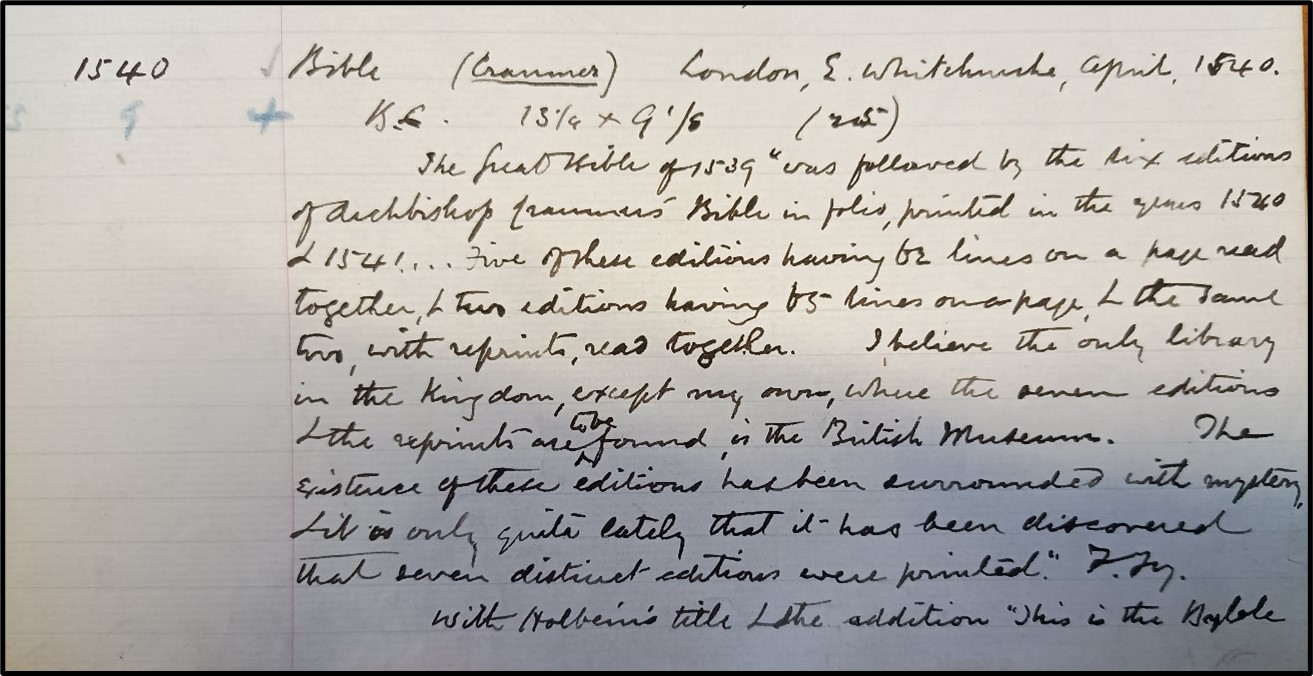 1540 √ Bible (Cranmer) London, E. Whitchurche, April, 1540.
9 + 13 1/4 × 9 1/8
The Great Bible of 1539 "was followed by the six editions
of Archbishop Cranmer's Bible in folio, printed in the years 1540
& 1541.... Five of these editions having 62 lines on a page read
together, & two editions having 65 lines on a page, & the same
two, with reprints, read together. I believe the only library
in the Kingdom, except my own, where the seven editions
& the reprints are to be found, is the British Museum. The
existence of these editions has been surrounded with mystery,
& it is only quite lately that it has been discovered
that seven distinct editions were printed." F. Fry.
With Holbein's title & the addition "This is the Byble